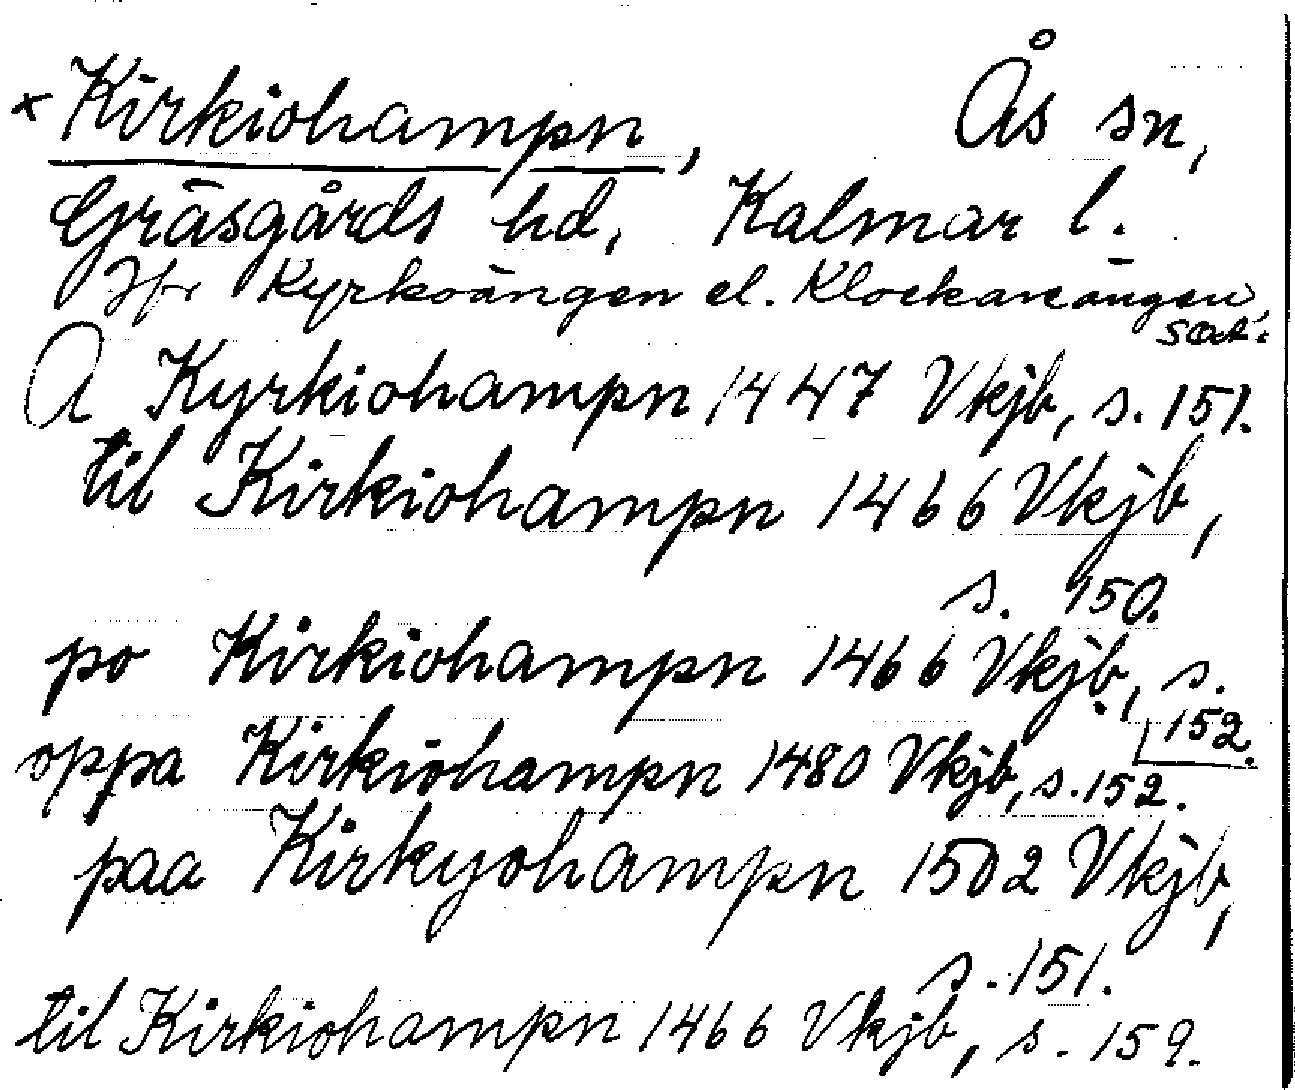 × Kirkiohampn, Ås sn,
Gräsgårds hd, Kalmar l.
Jfr Kyrkoängen el. Klockareängen,
sad.
A Kyrkiohampn 1447 Vkjb, s. 151.
til Kirkiohampn 1466 Vkjb,
s. 150.
po Kirkiohampn 1466 Vkjb, s.
152.
oppa Kirkiohampn 1480 Vkjb, s. 152.
paa Kirkyohampn 1502 Vkjb,
s. 151.
til Kirkiohampn 1466 Vkjb, s. 159.